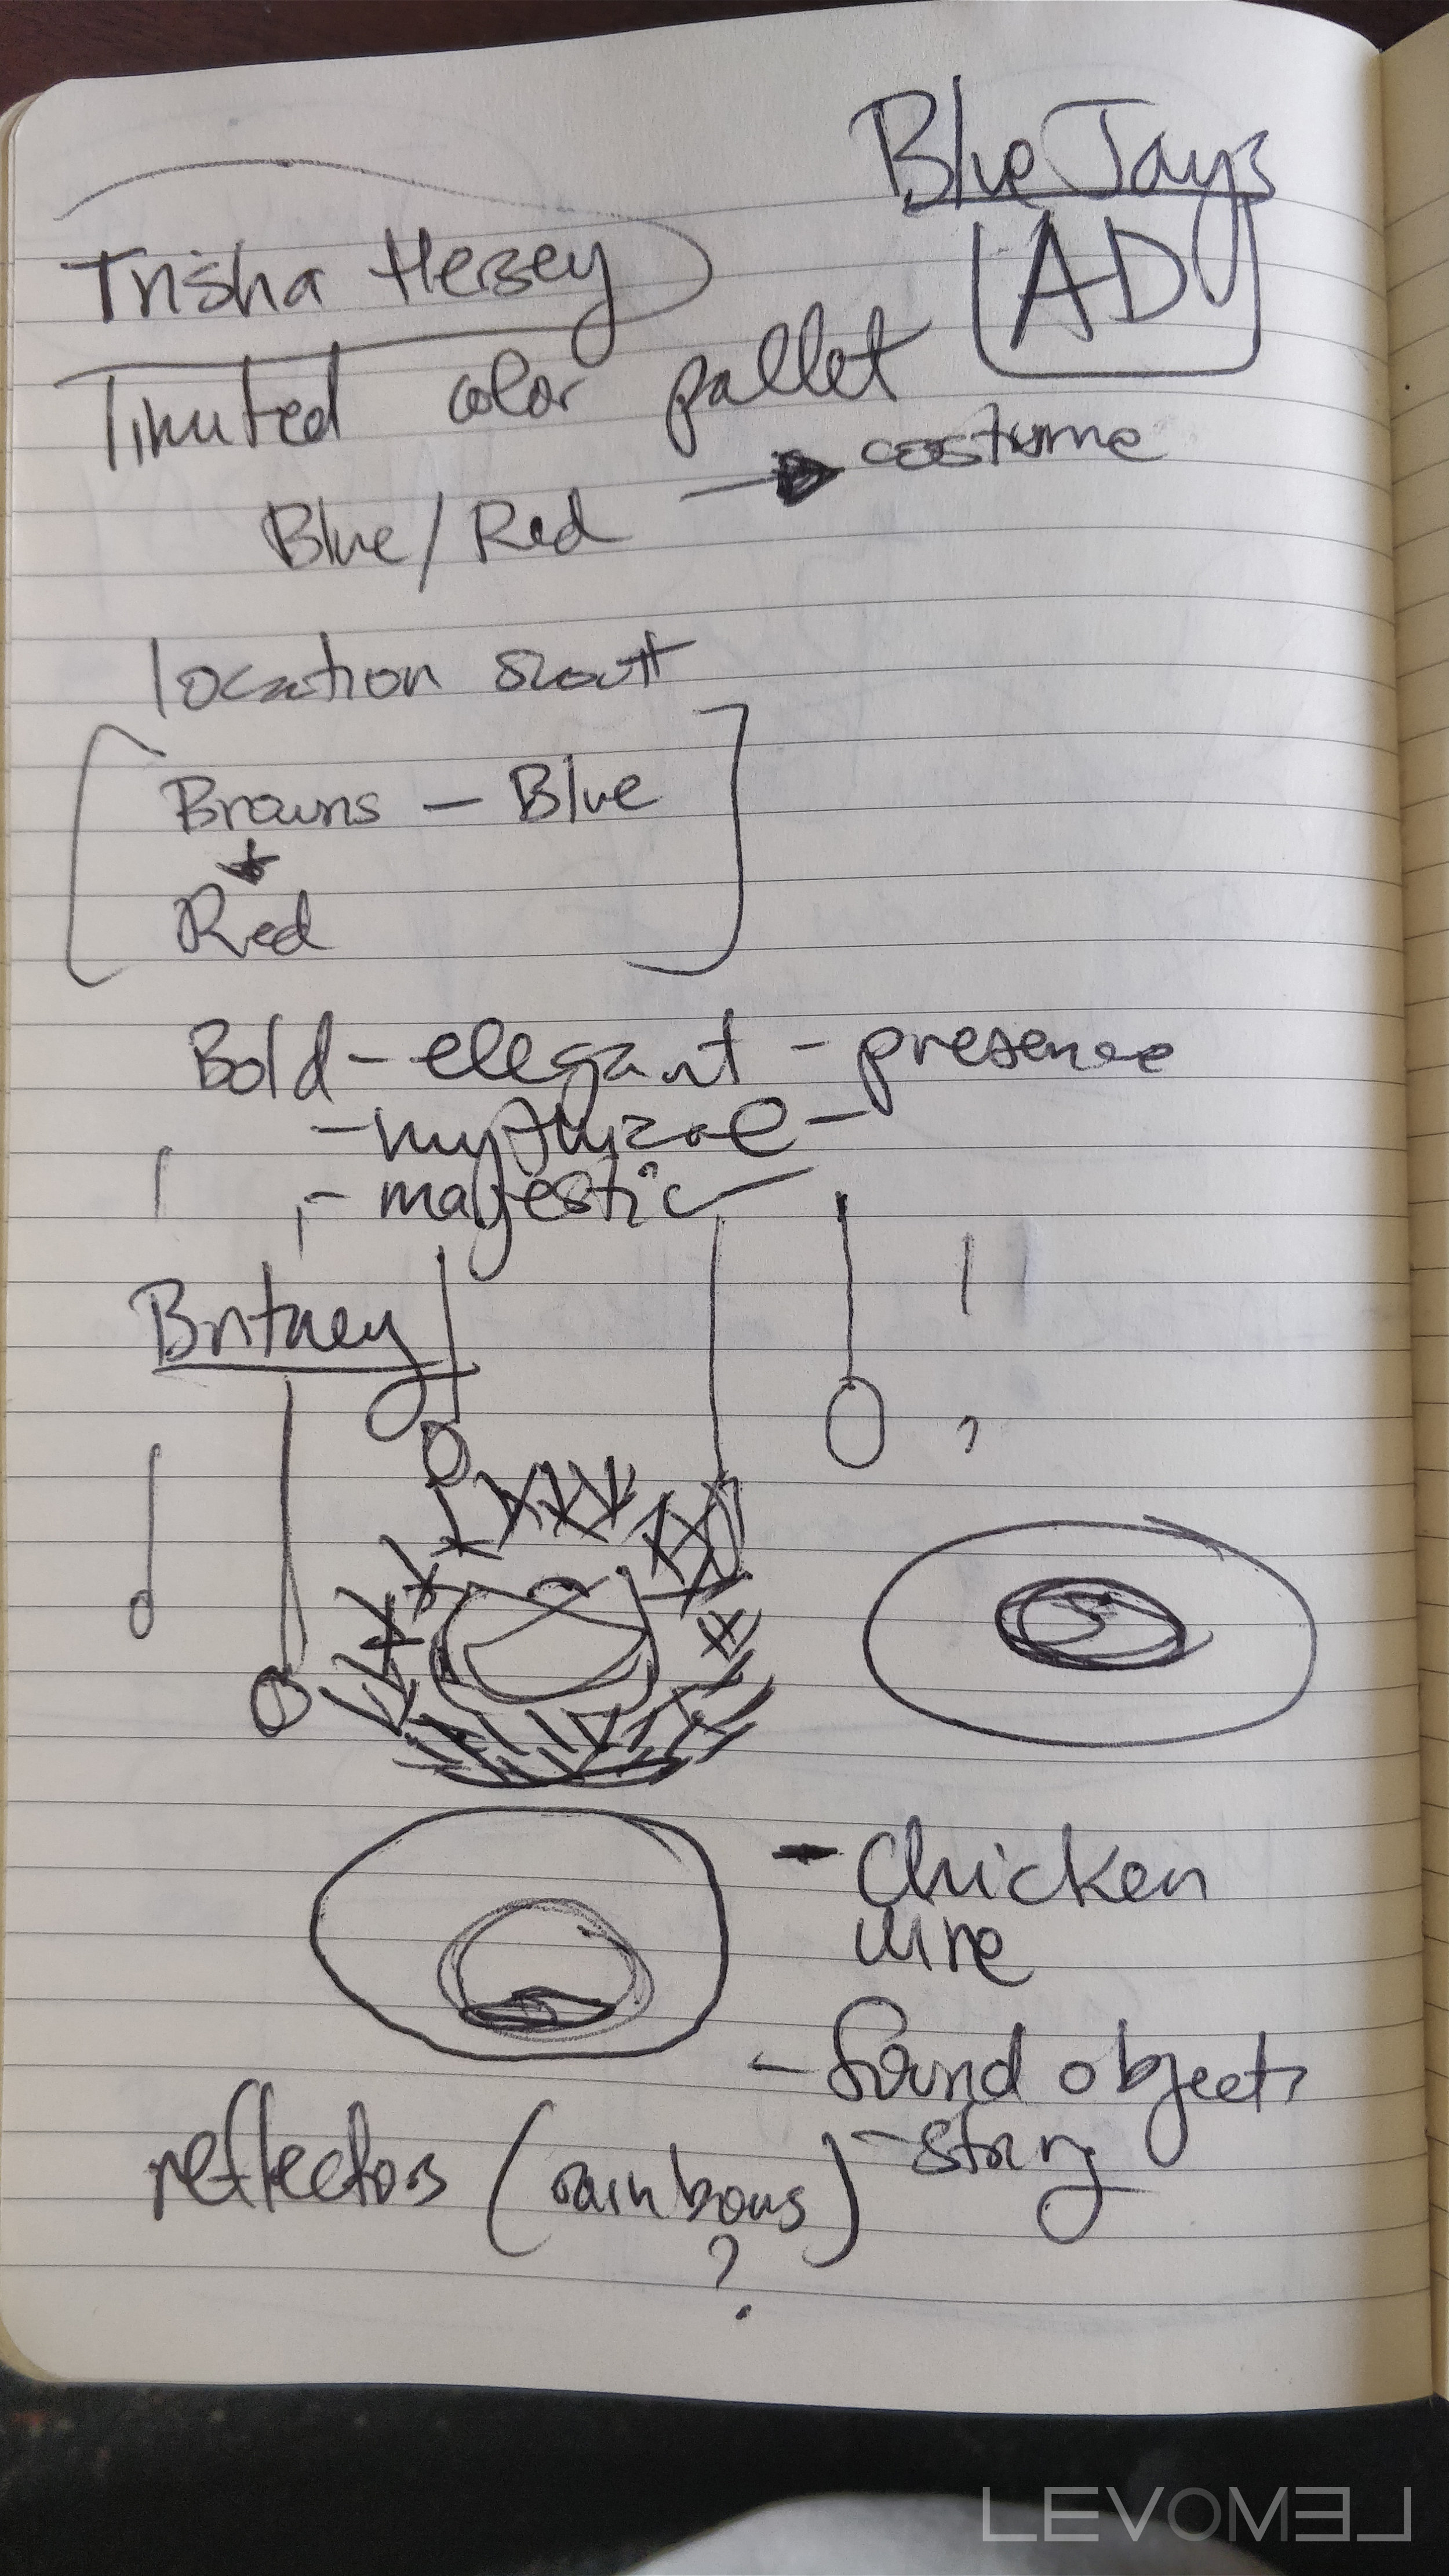 Blue Jays
AD
Trisha Hersey
limited color pallet
Blue/Red → costume
location scout
Browns - Blue
+
Red
Bold - elegant - presence
- majestic
Britney
- Chicken
wire
- found objects
- string
reflectors (rainbows)
?
LEVOMEL